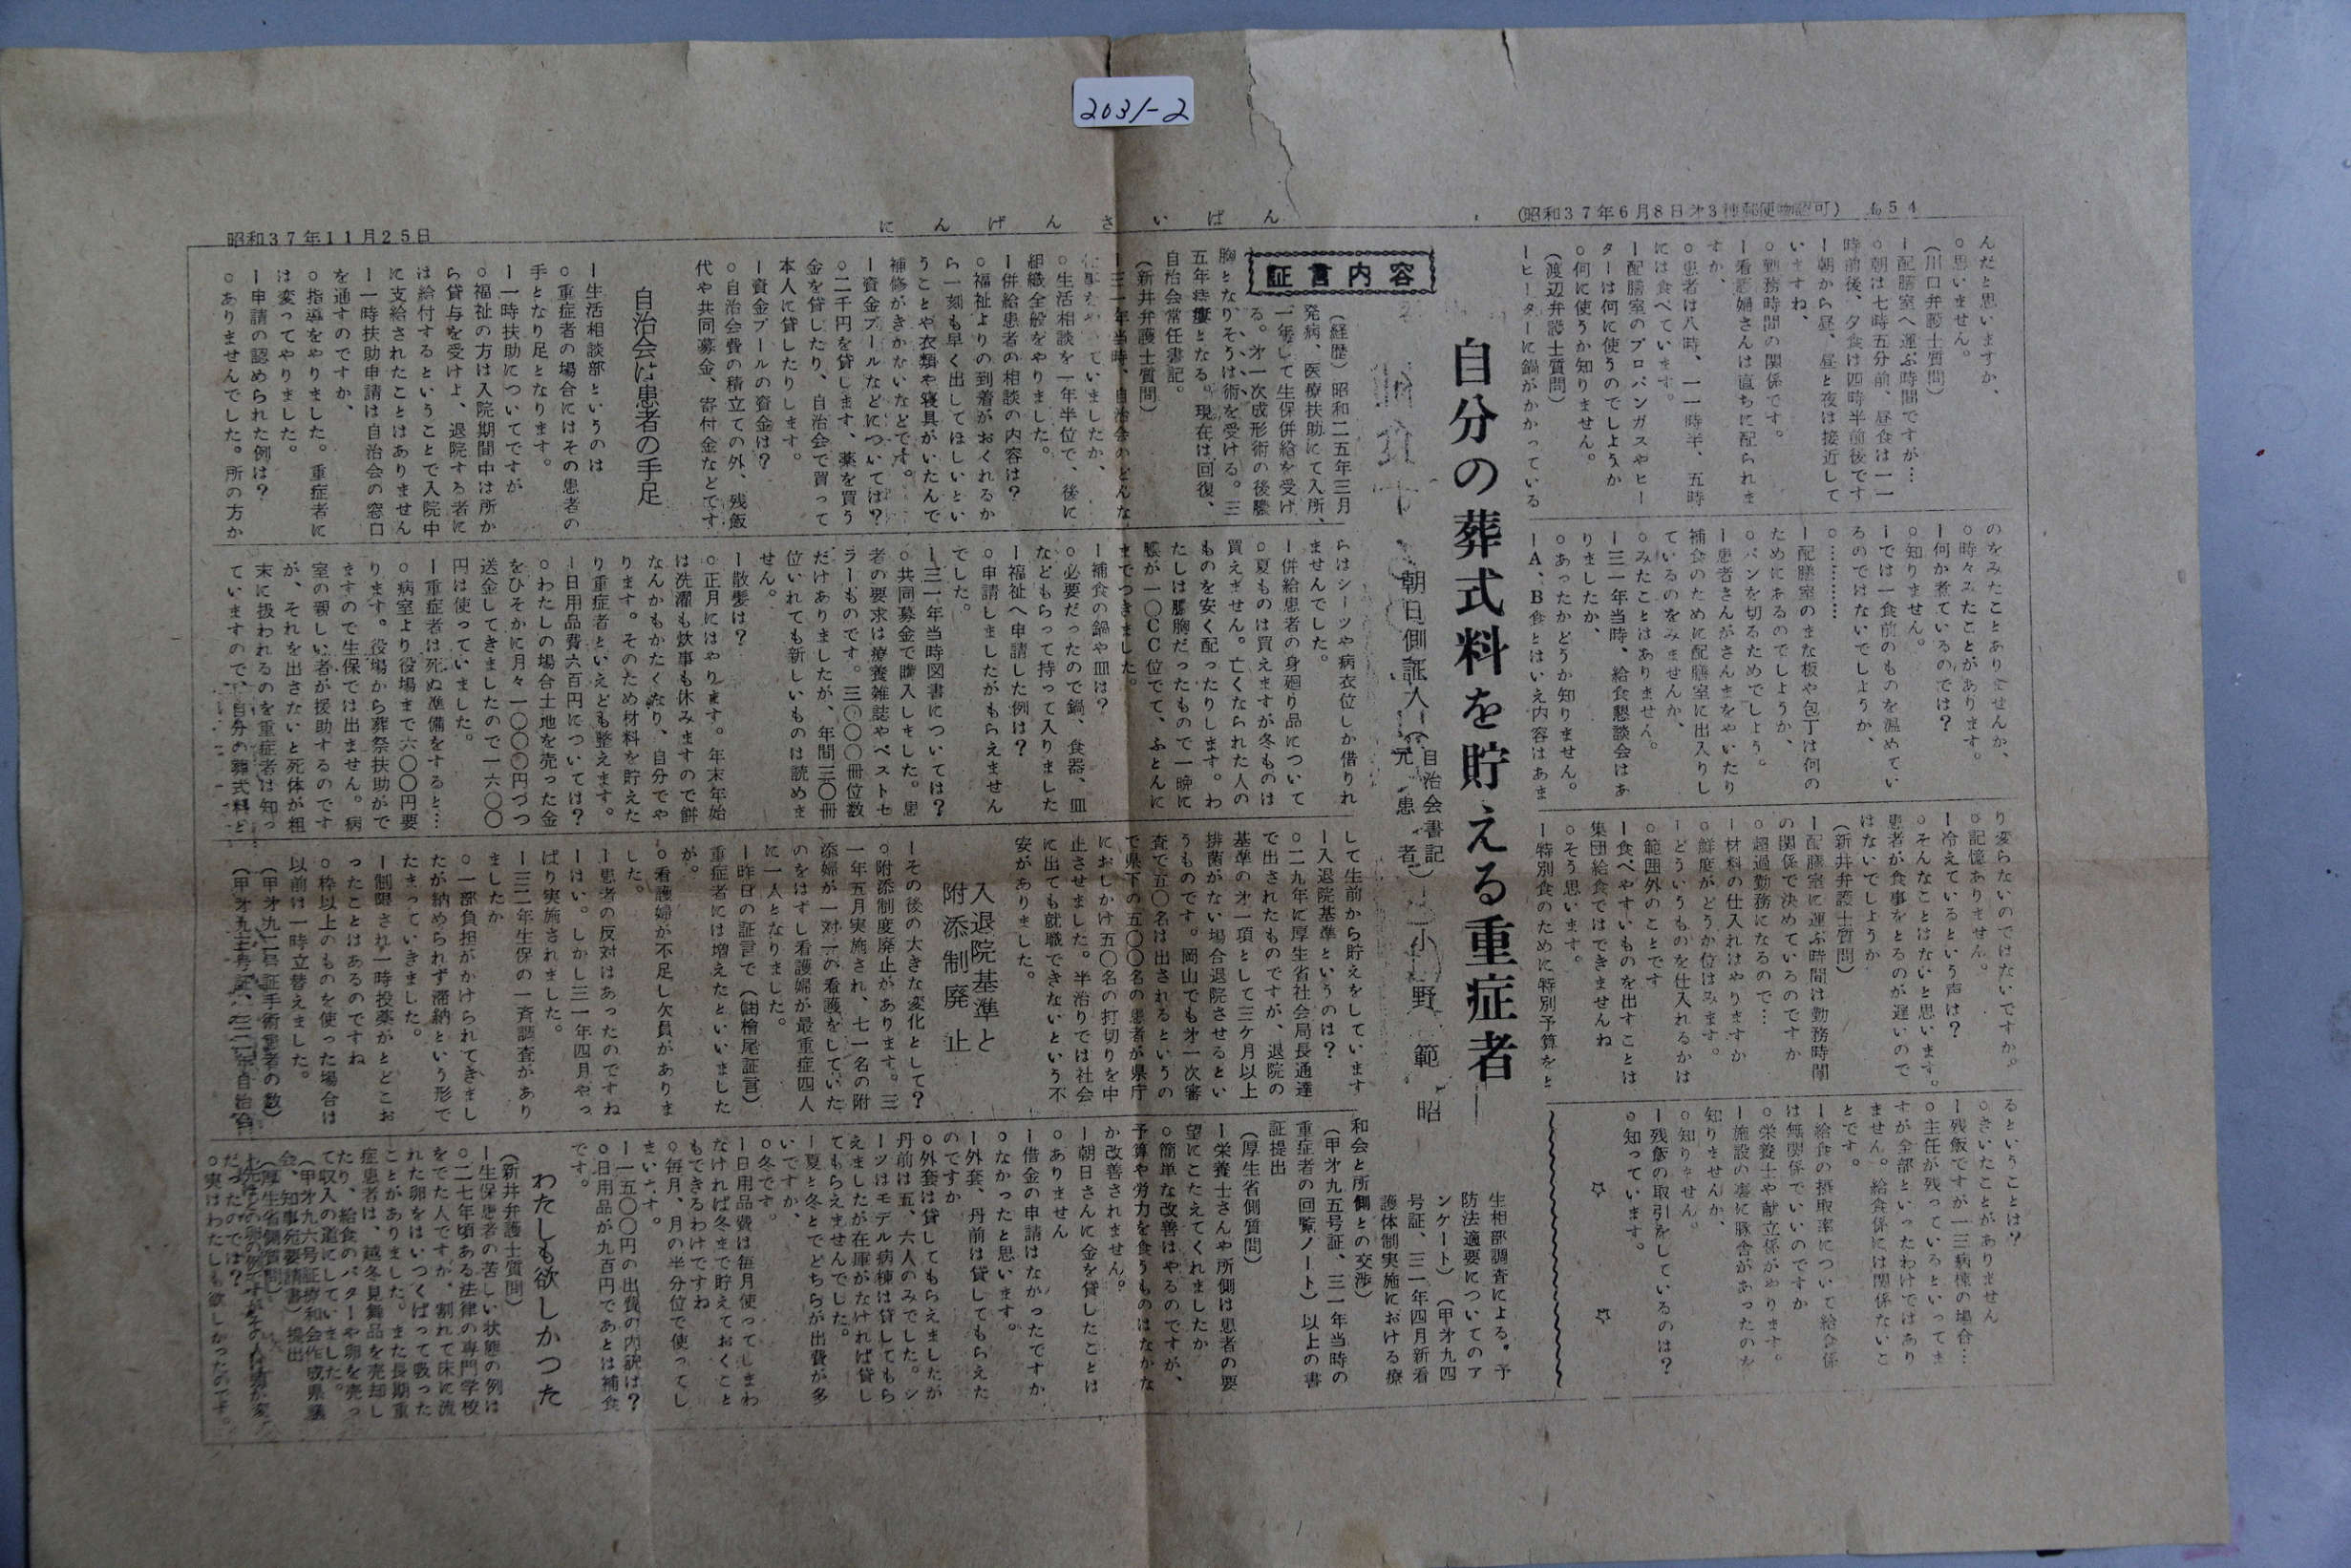 2031-2
(昭和37年6月8日才3種郵便物認可) №54
にんげんさいばん
昭和37年11月25日
んだと思いますか、
○思いません。
(川口弁護士質問)
ー配膳室へ運ぶ時間ですが…
○朝は七時五分前、昼食は一一
時前後、夕食は四時半前後です
ー朝から昼、昼と夜は接近して
いますね、
○勤務時間の関係です。
ー看護婦さんは直ちに配られま
すか、
○患者は八時、一一時半、五時
には食べています。
ー配膳室のプロパンガスやヒー
ターは何に使うのでしようか
○何に使うか知りません。
(渡辺弁護士質問)
ーヒーターに鍋がかかっている
のをみたことありませんか、
○時々みたことがあります。
ー何か煮ているのでは?
○知りません。
ーでは一食前のものを温めてい
るのではないでしようか、
○…………
ー配膳室のまな板や包丁は何の
ためにあるのでしようか、
○パンを切るためでしよう。
ー患者さんがさんまをやいたり
補食のために配膳室に出入りし
ているのをみませんか、
○みたことはありません。
ー三一年当時、給食懇談会はあ
りましたか、
○あったかどうか知りません。
ーA、B食とはいえ内容はあま
り変らないのではないですか。
○記憶ありません。
ー冷えているという声は?
○そんなことはないと思います。
患者が食事をとるのが遅いので
はないでしようか
(新井弁護士質問)
ー配膳室に運ぶ時間は勤務時間
の関係で決めているのですか
○超過勤務になるので…
ー材料の仕入れはやりますか
○鮮度がどうか位はみます。
ーどういうものを仕入れるかは
○範囲外のことです
ー食べやすいものを出すことは
集団給食ではできませんね
○そう思います。
ー特別食のために特別予算をと
るということは?
○きいたことがありません
ー残飯ですが一三病棟の場合…
○主任が残っているといってま
すが全部といったわけではあり
ません。給食係には関係ないこ
とです。
ー給食の摂取率について給食係
は無関係でいいのですか
○栄養士や献立係がやります。
ー施設の裏に豚舎があったのを
知りませんか、
○知りません。
ー残飯の取引をしているのは?
○知っています。
☆ ☆
自分の葬式料を貯える重症者
朝日側証人(自治会書記
元患者)小野範昭
証言内容
(経歴)昭和二五年三月
発病、医療扶助にて入所、
一年して生保併給を受け
る。才一次成形術の後膿
胸となりそうは術を受ける。三
五年痊癒となる。現在は回復、
自治会常任書記。
(新井弁護士質問)
ー三一年当時、自治会のどんな
仕事をやっていましたか、
○生活相談を一年半位で、後に
組織全般をやりました。
ー併給患者の相談の内容は?
○福祉よりの到着がおくれるか
ら一刻も早く出してほしいとい
うことや衣類や寝具がいたんで
補修がきかないなどです。
ー資金プールなどについては?
○二千円を貸します、薬を買う
金を貸したり、自治会で買って
本人に貸したりします。
ー資金プールの資金は?
○自治会費の積立ての外、残飯
代や共同募金、寄付金などです
自治会は患者の手足
ー生活相談部というのは
○重症者の場合にはその患者の
手となり足となります。
ー一時扶助についてですが
○福祉の方は入院期間中は所か
ら貸与を受けよ、退院する者に
は給付するということで入院中
に支給されたことはありません
ー一時扶助申請は自治会の窓口
を通すのですか、
○指導をやりました。重症者に
は変ってやりました。
ー申請の認められた例は?
○ありませんでした。所の方か
らはシーツや病衣位しか借りれ
ませんでした。
ー併給患者の身廻り品について
○夏ものは買えますが冬ものは
買えません。亡くなられた人の
ものを安く配ったりします。わ
たしは膿胸だったもので一晩に
膿が一〇CC位でて、ふとんに
までつきました。
ー補食の鍋や皿は?
○必要だったので鍋、食器、皿
などもらって持って入りました
ー福祉へ申請した例は?
○申請しましたがもらえません
でした。
ー三一年当時図書については?
○共同募金で購入しました。患
者の要求は療養雑誌やベストセ
ラーものです。三〇〇〇冊位数
だけありましたが、年間三〇冊
位いれても新しいものは読めま
せん。
ー散髪は?
○正月にはやります。年末年始
は洗濯も炊事も休みますので餅
なんかもかたくなり、自分でや
ります。そのため材料を貯えた
り重症者といえども整えます。
ー日用品費六百円については?
○わたしの場合土地を売った金
をひそかに月々一〇〇〇円づつ
送金してきましたので一六〇〇
円は使っていました。
ー重症者は死ぬ準備をすると…
○病室より役場まで六〇〇円要
ります。役場から葬祭扶助がで
ますので生保では出ません。病
室の親しい者が援助するのです
が、それを出さないと死体が粗
末に扱われるのを重症者は知っ
ていますので、自分の葬式料と
して生前から貯えをしています
ー入退院基準というのは?
○二九年に厚生省社会局長通達
で出されたものですが、退院の
基準の才一項として三ケ月以上
排菌がない場合退院させるとい
うものです。岡山でも才一次審
査で五〇名は出されるというの
で県下の五〇〇名の患者が県庁
におしかけ五〇名の打切りを中
止させました。半治りでは社会
に出ても就職できないという不
安がありました。
入退院基準と
附添制廃止
ーその後の大きな変化として?
○附添制度廃止があります。三
一年五月実施され、七一名の附
添婦が一対一の看護をしていた
のをはずし看護婦が最重症四人
に一人となりました。
ー昨日の証言で(註檜尾証言)
重症者には増えたといいました
が。
○看護婦が不足し欠員がありま
した。
ー患者の反対はあったのですね
ーはい。しかし三一年四月やっ
ぱり実施されました。
ー三二年生保の一斉調査があり
ましたか
○一部負担がかけられてきまし
たが納められず滞納という形で
たまっていきました。
ー制限され一時投薬がとどこお
ったことはあるのですね
○枠以上のものを使った場合は
以前は一時立替えました。
(甲才九二号証手術患者の数)
(甲才九三号証、三一年自治会
生相部調査による。予
防法適要についてのア
ンケート)(甲才九四
号証、三一年四月新看
護体制実施における療
和会と所側との交渉)
(甲才九五号証、三一年当時の
重症者の回覧ノート)以上の書
証提出
(厚生省側質問)
ー栄養士さんや所側は患者の要
望にこたえてくれましたか
○簡単な改善はやるのですが、
予算や労力を食うものはなかな
か改善されません。
ー朝日さんに金を貸したことは
○ありません
ー借金の申請はなかったですか
○なかったと思います。
ー外套、丹前は貸してもらえた
のですか
○外套は貸してもらえましたが
丹前は五、六人のみでした。シ
ーツはモデル病棟は貸してもら
えましたが在庫がなければ貸し
てもらえませんでした。
ー夏と冬とでどちらが出費が多
いですか、
○冬です。
ー日用品費は毎月使ってしまわ
なければ冬まで貯えておくこと
もできるわけですね
○毎月、月の半分位で使ってし
まいます。
ー一五〇〇円の出費の内訳は?
○日用品が九百円であとは補食
です。
わたしも欲しかつた
(新井弁護士質問)
ー生保患者の苦しい状態の例は
○二七年頃ある法律の専門学校
をでた人ですが、割れて床に流
れた卵をはいつくばって吸った
ことがありました。また長期重
症患者は、越冬見舞品を売却し
たり、給食のバターや卵を売っ
て収入の道にしていました。
(甲才九六号証療和会作成県議
会、知事宛要請書)提出
(厚生省側質問)
だったのでは?
○実はわたしも欲しかったのです。